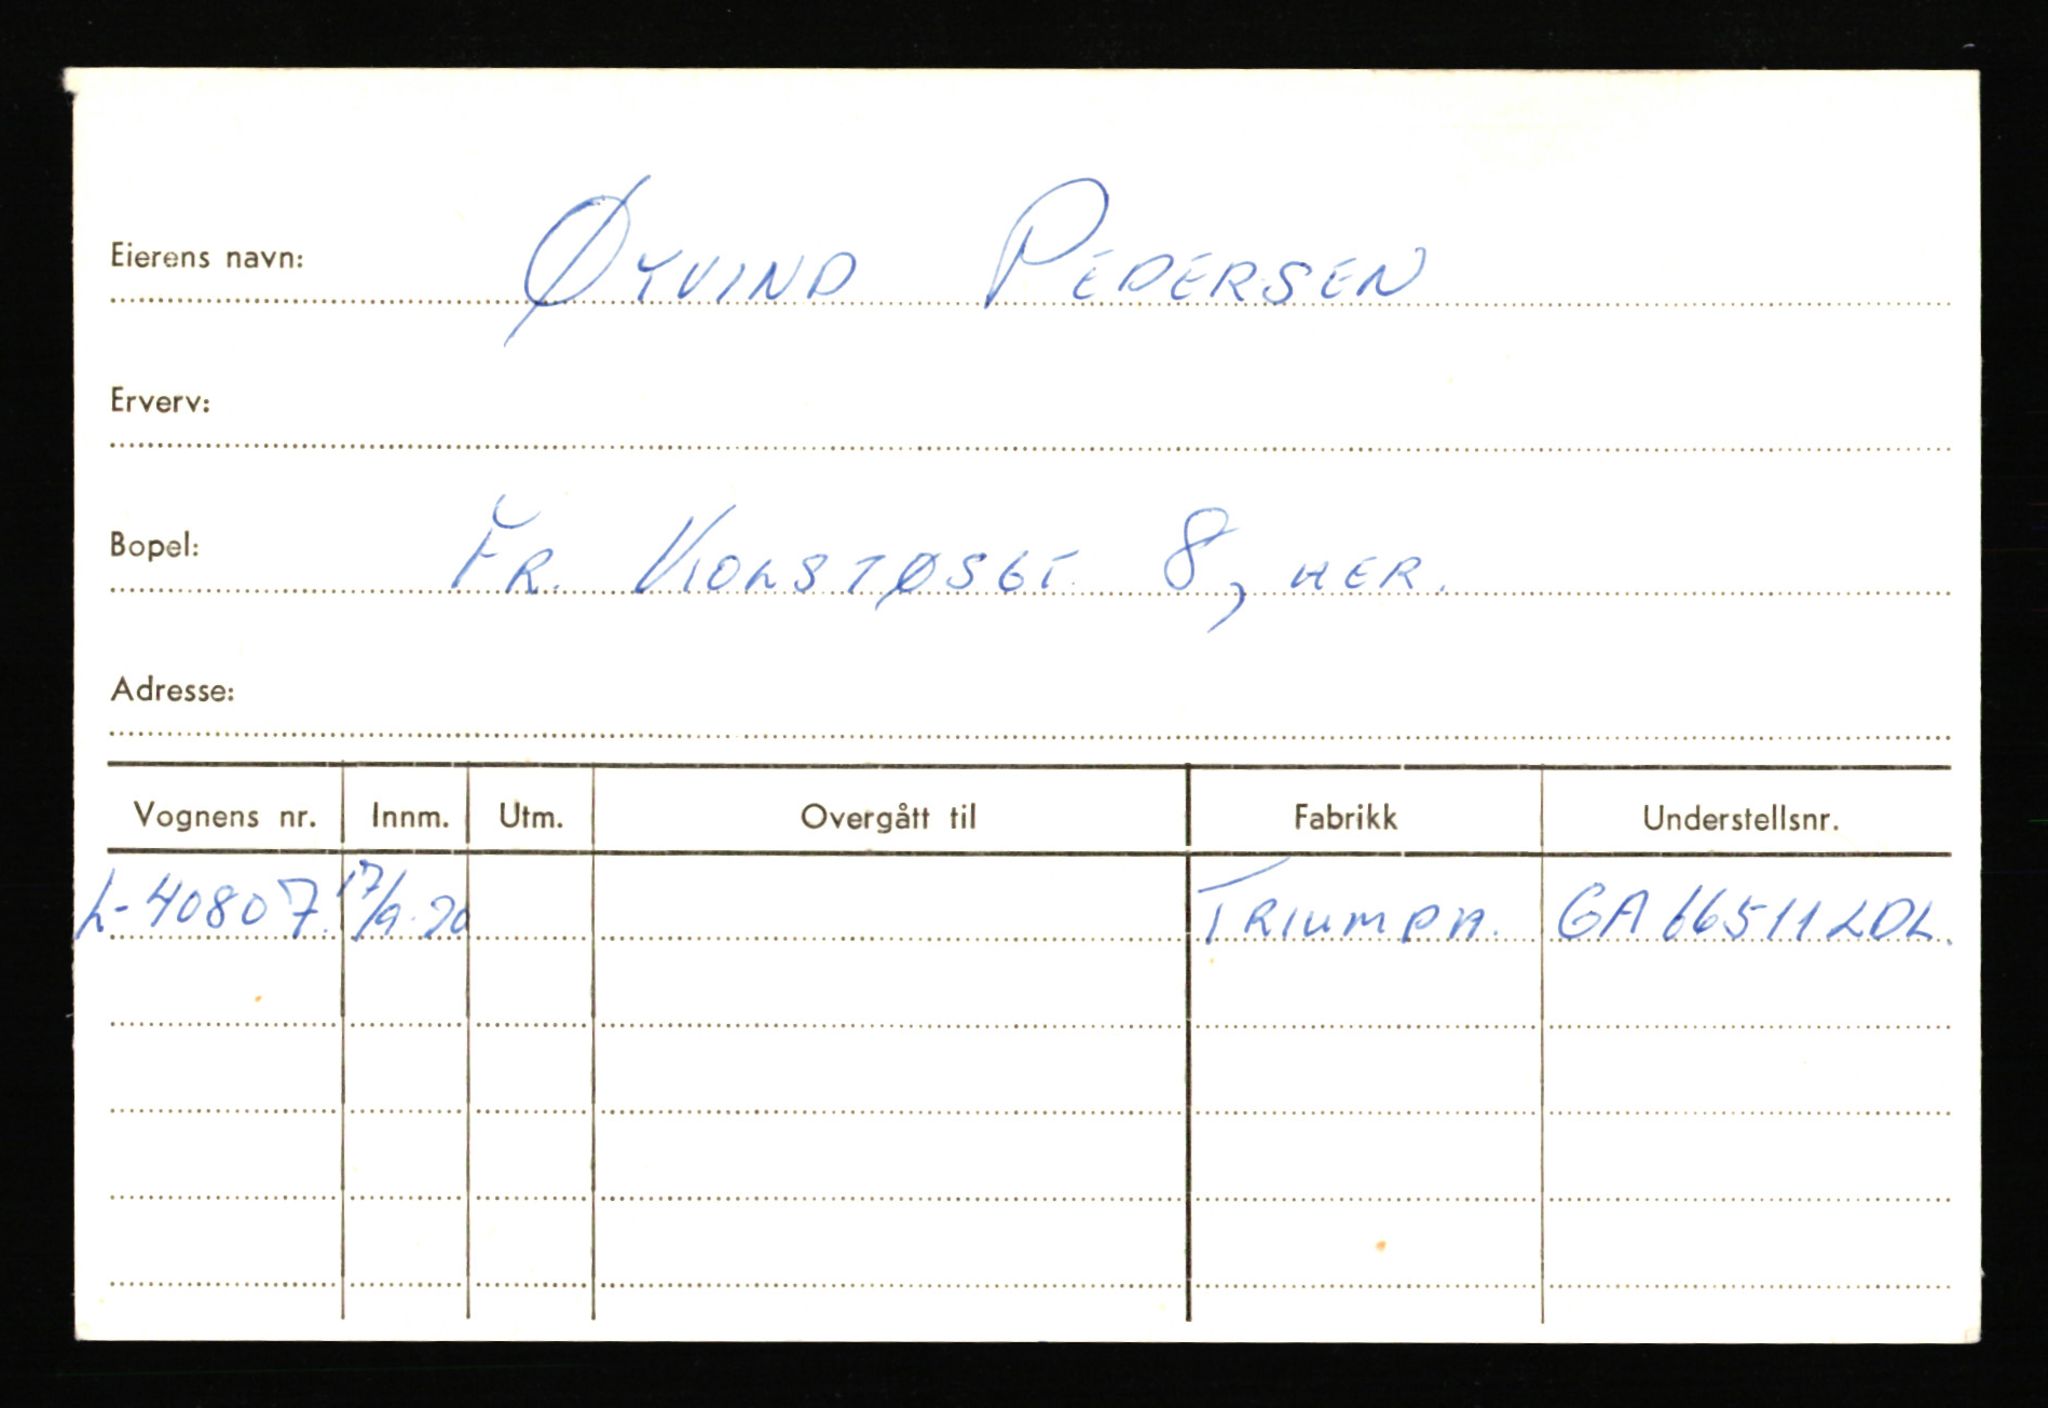 Eierens navn: ØYVIND PEDERSEN
Erverv:
Bopel: FR. VIOLSTØSGT. 8, HER.
Adresse:
Vognens nr. Innm. Utm. Overgått til Fabrikk Understellsnr.
L-40807. 17/9-70 TRIUMPH. GA 66511 LDL.